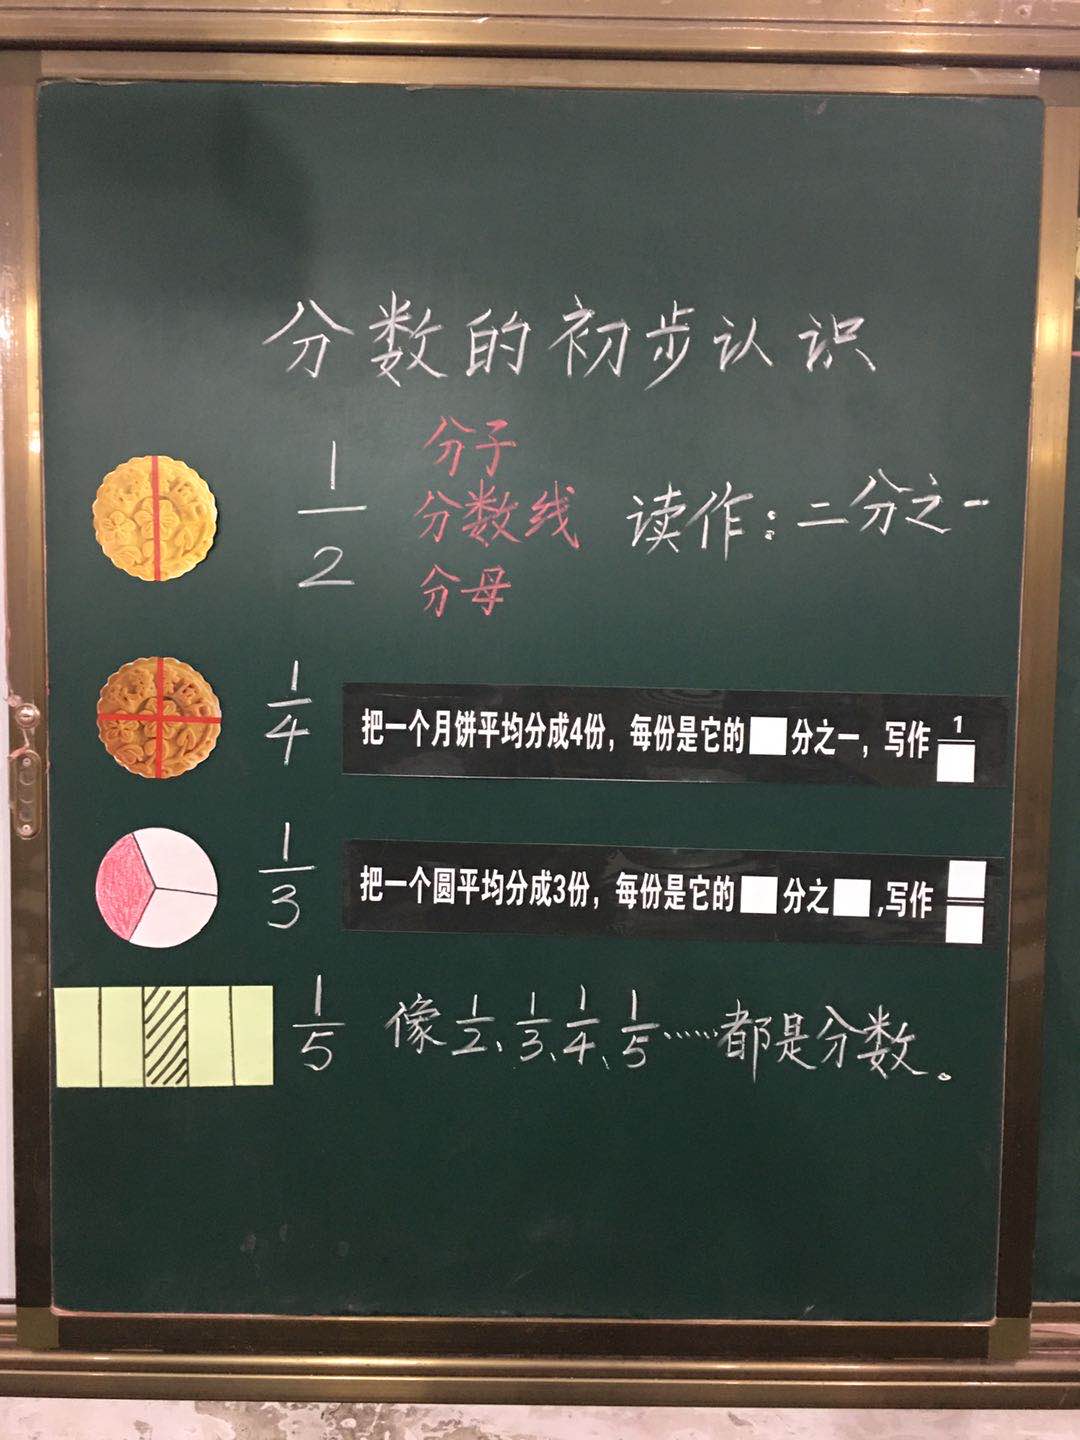 分数的初步认识
1/2 分子 分数线 分母 读作：二分之一
1/4 把一个月饼平均分成4份，每份是它的□分之一，写作 1/□
1/3 把一个圆平均分成3份，每份是它的□分之□，写作 □/□
1/5 像1/2、1/3、1/4、1/5……都是分数。